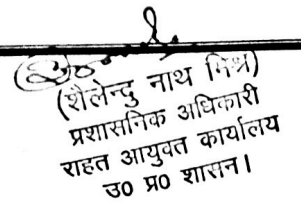 (शैलेन्दु नाथ मिश्र)
प्रशासनिक अधिकारी
राहत आयुक्त कार्यालय
उ0 प्र0 शासन।